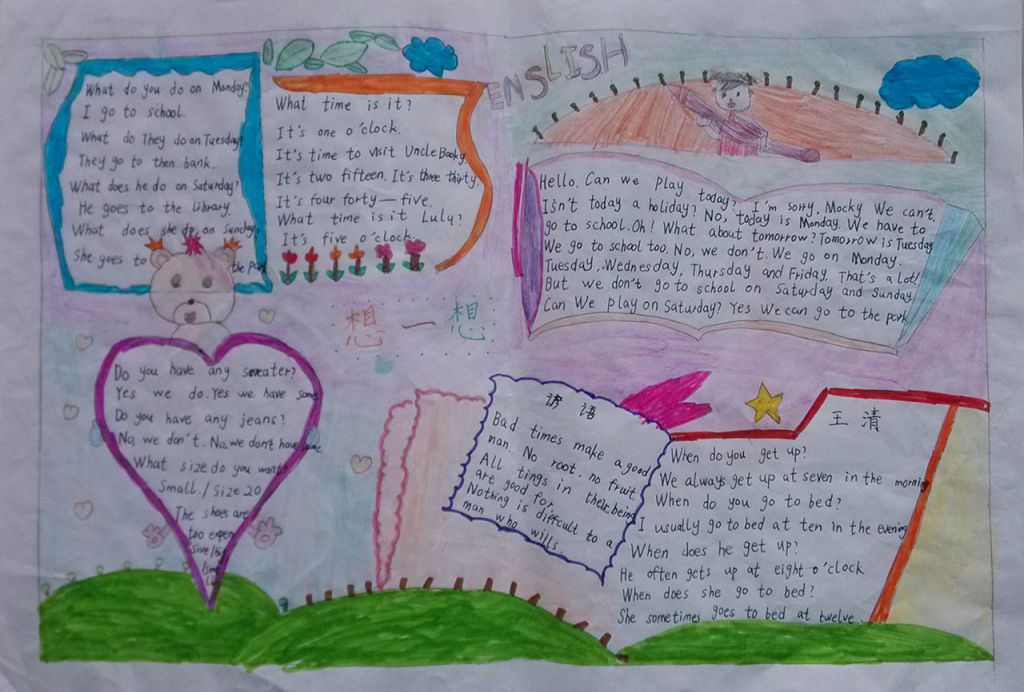 ENSLISH
What do you do on Monday?
I go to school.
What do They do on Tuesday?
They go to then bank.
What does he do on Saturday?
He goes to the library.
What does she do on Sunday?
She goes to the Park
What time is it?
It's one o'clock.
It's time to visit Uncle Booky.
It's two fifteen. It's three thirty.
It's four forty-five.
What time is it Luly?
It's five o'clock.
Hello. Can we play today? I'm sorry, Mocky We can't.
Isn't today a holiday? No, today is Monday. We have to
go to school. Oh! What about tomorrow? Tomorrow is Tuesday
We go to school too. No, we don't. We go on Monday.
Tuesday, Wednesday, Thursday and Friday. That's a lot!
But we don't go to school on Saturday and Sunday,
Can We play on Saturday? Yes We can go to the park.
想一想
Do you have any sweater?
Yes we do. Yes we have some
Do you have any jeans?
No, we don't. No, we don't have some
What size do you want?
Small. / Size 20
The shoes are
too expen
sive/
谚语
Bad times make a good
man. No root, no fruit.
All tings in their being
are good for.
Nothing is difficult to a
man who wills.
王清
When do you get up?
We always get up at seven in the morning
When do you go to bed?
I usually go to bed at ten in the evening
When does he get up?
He often gets up at eight o'clock
When does she go to bed?
She sometimes goes to bed at twelve.